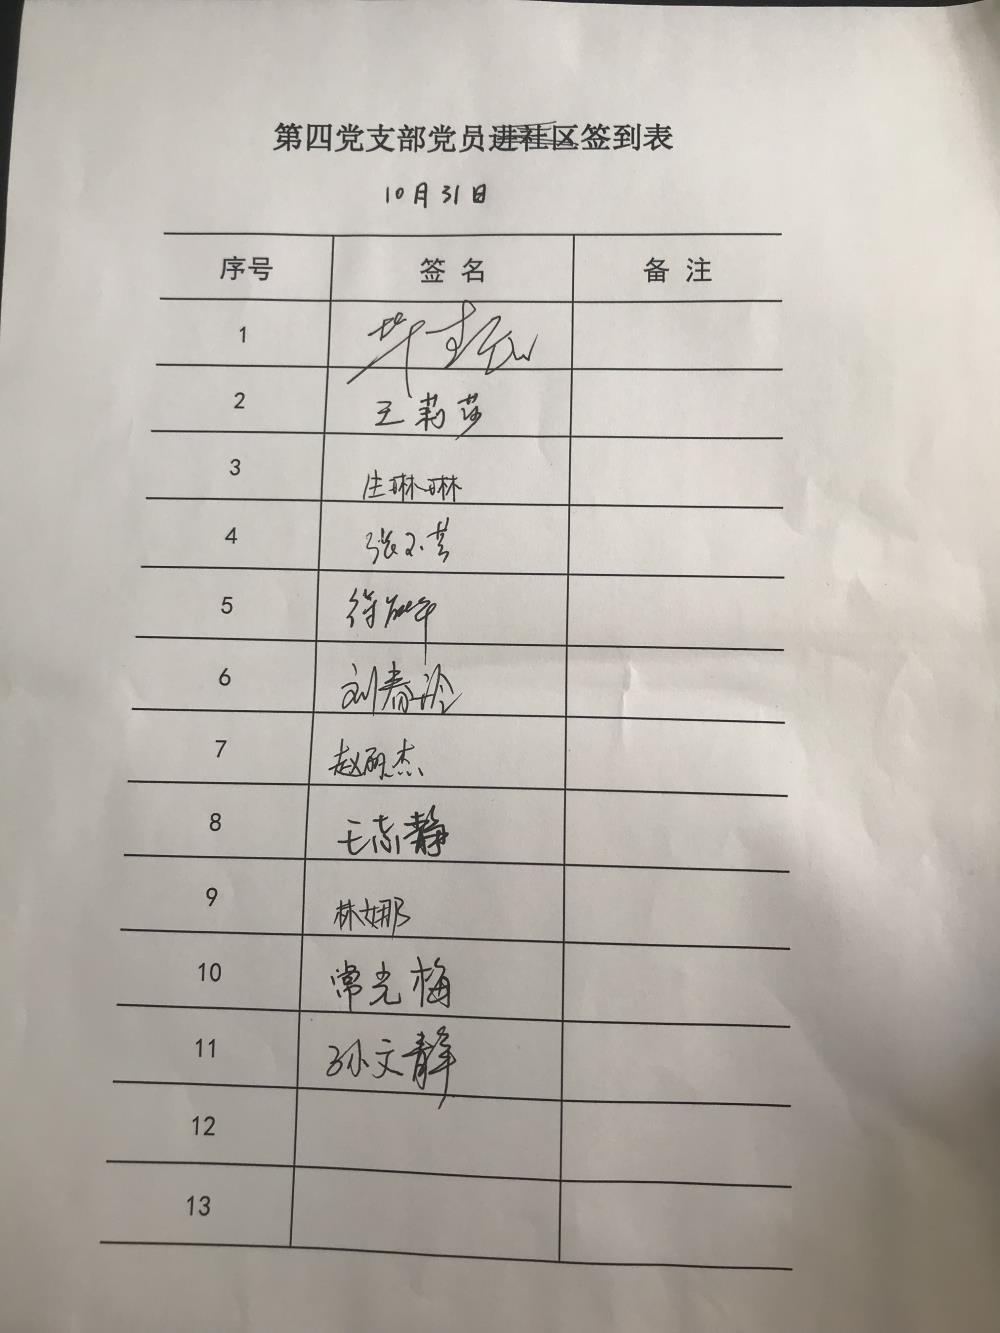 第四党支部党员进社区签到表
10月31日
序号 签名 备注
1
2 王莉莎
3 生琳琳
4
5
6 刘春玲
7 赵丽杰
8 王志静
9 林娜
10 常光梅
11 孙文静
12
13